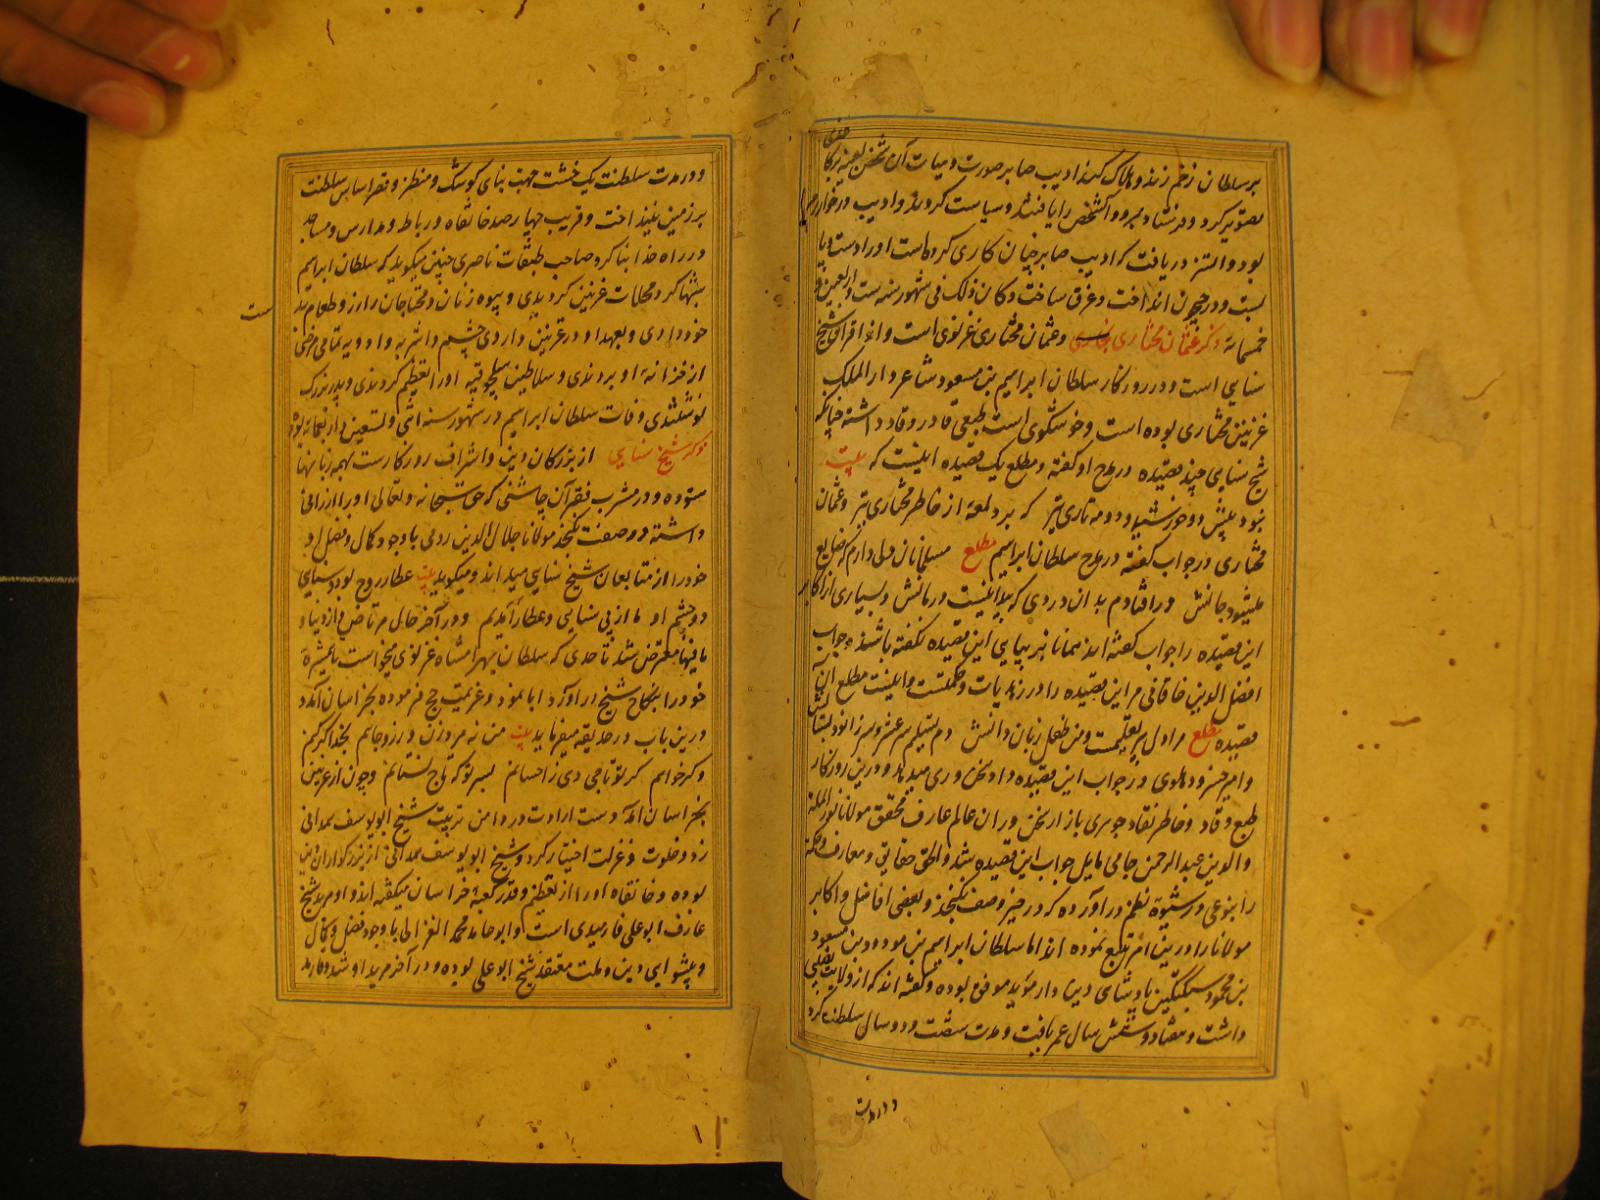 بر سلطان زخم زند و هلاک کند ادیب صابر صورت و هیات آن شخص بعینه بر کاغذی
تصویر کرد و فرستاد بمرو و آنشخص را یافتند و سیاست کردند و ادیب در خوارزم
بود و اتسز دریافت که ادیب صابر چنان کاری کرده است او را دست و پا
بست و در جیحون انداخت و غرق ساخت و کان ذلک فی شهور سنه ست و اربعین و
خمسمائة ذکر عثمان مختاری و عثمان مختاری غزنوی است و از اقران شیخ
سنایی است و در روزگار سلطان ابراهیم بن مسعود شاعر دار الملک
غزنین مختاری بوده است و خوشگوی است طبعی قادر و قاد داشته چنانکه
شیخ سنایی چند قصیده در مدح او گفته و مطلع یک قصیده اینست که بیت
نبود پیش دو خورشید و دو مه تاری تر که برد لمعه از خاطر مختاری تر و عثمان
مختاری در جواب گفته در مدح سلطان ابراهیم مطلع مسلمانان دلی دارم که ضایع
میشود جانش در افتادم بدان دردی که پیدا نیست درمانش و بسیاری از اکابر
این قصیده را جواب گفته اند همانا بزیبایی این قصیده نگفته باشند و جواب
افضل الدین خاقانی مر این قصیده را در زهدیات و حکمتست و اینست مطلع آن
قصیده مطلع مرا دل پیر تعلیمست و من طفل زبان دانش دم تسلیم سر عشر و سر زانو دبستانش
و امیر خسرو دهلوی در جواب این قصیده داد سخن وری میدهد و درین روزگار
طبع وقاد و خاطر نقاد جوهری بازار سخن وران عالم عارف محقق مولانا نور المله
والدین عبد الرحمن جامی مایل جواب این قصیده شد و الحق حقایق و معارف و حکمة
را بنوعی در شیوه نظم در آورده که در حیز وصف نگنجد و بعضی افاضل و اکابر
مولانا را درین امر تتبع نموده اند اما سلطان ابراهیم بن مودود بن مسعود
بن محمود سبکتکین پادشاهی دین دار مؤید موفق بوده و گفته اند که از ولایت نصیبی
داشت و هفتاد و شش سال عمر یافت و مدت شصت و دو سال سلطنت کرد
و در مدت
و در مدت سلطنت یک خشت جهت بنای کوشک و منظر و قصر اساس سلطنت
بر زمین نینداخت و قریب چهار صد خانقاه و رباط و مدارس و مساجد
در راه خدا بنا کرد صاحب طبقات ناصری چنین میگوید که سلطان ابراهیم
شبها گرد محلات غزنین گردیدی و بیوه زنان و محتاجان را زر و طعام
خود دادی و بعهد او در غزنین داروی چشم و اشربه و ادویه تمامی مرضی
از خزانهٔ او بردندی و سلاطین سلجوقیه او را تعظیم کردندی و پدر بزرگ
نوشتندی وفات سلطان ابراهیم در شهور سنه اثنی و تسعین و اربعمائه بود
ذکر شیخ سنایی از بزرگان دین و اشراف روزگارست بهمه زبانها
ستوده و در مشرب فقر آن چاشنی که حق سبحانه و تعالی او را ارزانی
داشته در وصفت نگنجد مولانا جلال الدین رومی با وجود کمال و فضل او
خود را از متابعان شیخ سنایی میداند و میگوید بیت عطار روح بود و سنایی
دو چشم او ما از پی سنایی و عطار آمدیم و در آخر حال مرتاض و از دنیا و
ما فیها معترض شد تا حدی که سلطان بهرامشاه غزنوی میخواست تا همشیرهٔ
خود را بنکاح شیخ در آورد ابا نمود و عزیمت حج فرموده بخراسان آمد و
درین باب در حدیقه میفرماید بیت من نه مرد زن و زر و جاهم بخدا گر کنم
و گر خواهم گر تو تاجی دهی ز احسانم بسر تو که تاج نستانم و چون از غزنین
بخراسان آمد دست ارادت در دامن تربیت شیخ ابو یوسف همدانی
زد و خلوت و عزلت اختیار کرد و شیخ ابو یوسف همدانی از بزرگواران دین
بوده و خانقاه او را از تعظیم و قدر کعبهٔ خراسان میگفته اند و او مرید شیخ
عارف ابو علی فارمیدی است و ابو حامد محمد الغزالی با وجود فضل و کمال
و پیشوایی دین و ملت معتقد شیخ ابو علی بوده و در آخر مرید او شد و مدار